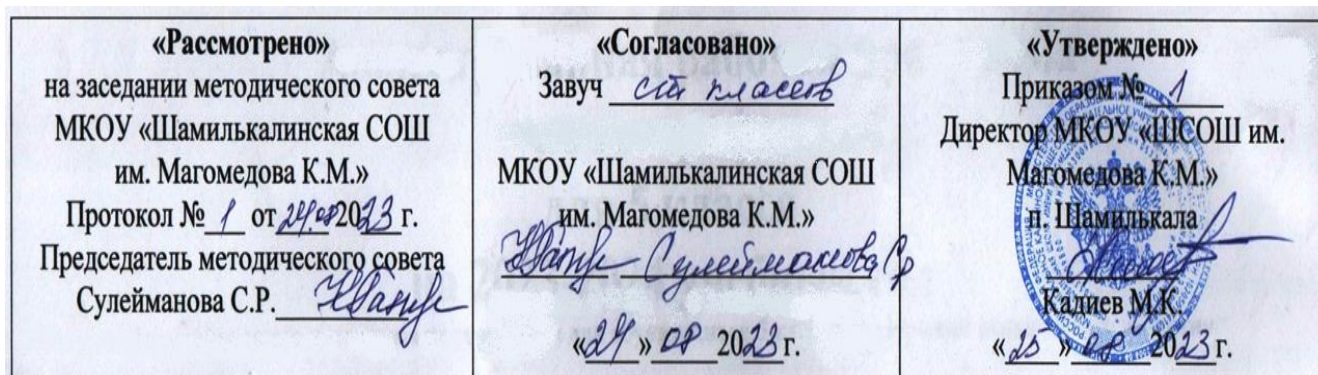 «Рассмотрено»
на заседании методического совета
МКОУ «Шамилькалинская СОШ
им. Магомедова К.М.»
Протокол № 1 от 24.08 2023 г.
Председатель методического совета
Сулейманова С.Р.
«Согласовано»
Завуч ст классов
МКОУ «Шамилькалинская СОШ
им. Магомедова К.М.»
Сулейманова С.Р
«24» 08 2023 г.
«Утверждено»
Приказом № 1
Директор МКОУ «ШСОШ им.
Магомедова К.М.»
п Шамилькала
Кадиев М.К.
«25» 08 2023 г.